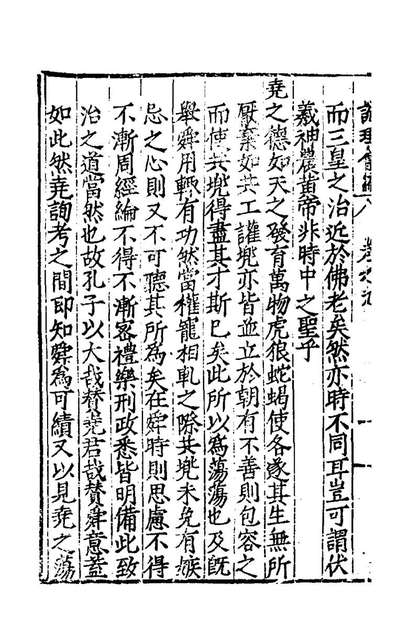 而三皇之治近於佛老矣然亦時不同耳豈可謂伏
羲神農黃帝非時中之聖乎
堯之德如天之發育萬物虎狼蛇蝎使各遂其生無所
厭棄如共工讙兜亦皆並立於朝有不善則包容之
而使共兜得盡其才斯已矣此所以為蕩蕩也及既
舉舜用輒有功然當權寵相軋之際共兜未免有嫉
忌之心則又不可聽其所為矣在舜時則思慮不得
不漸周經綸不得不漸密禮樂刑政悉皆明備此致
治之道當然也故孔子以大哉賛堯君哉賛舜意蓋
如此然堯詢考之間即知舜為可績又以見堯之蕩